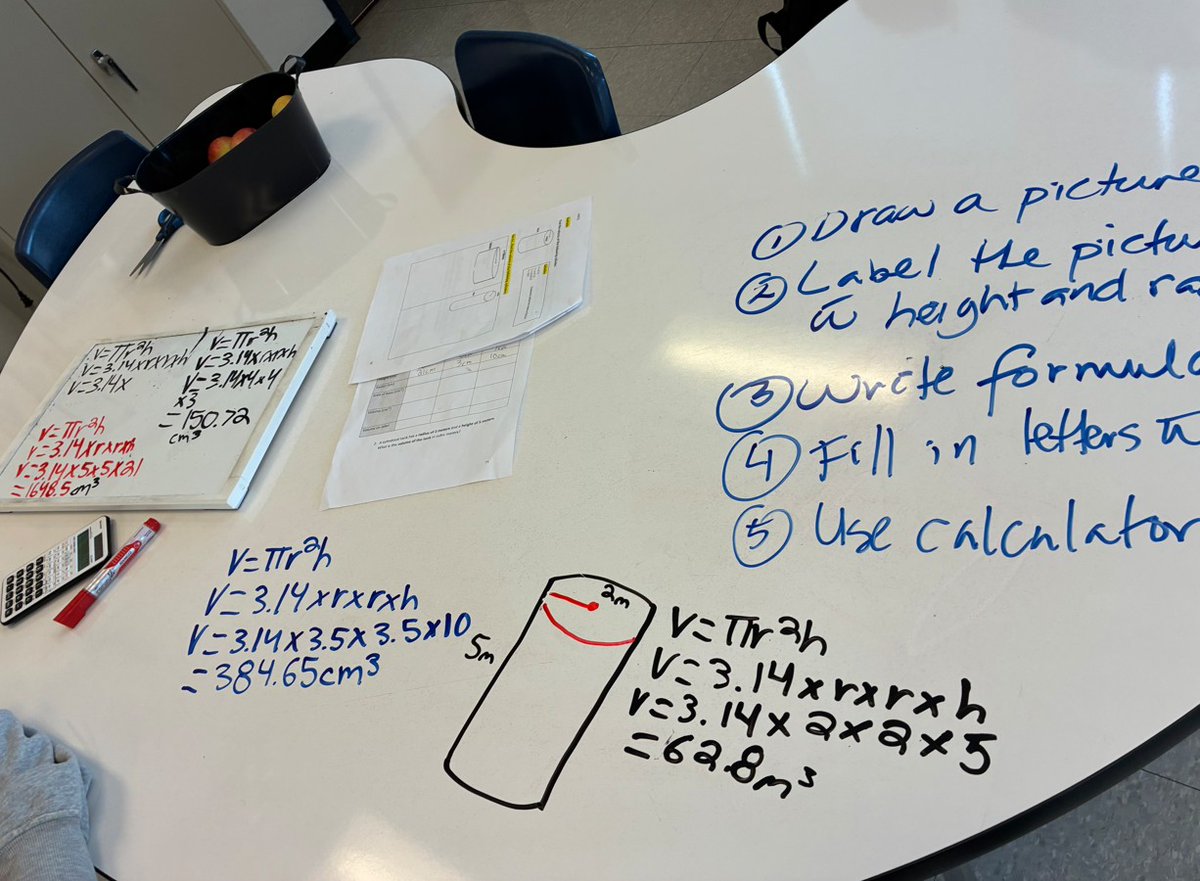 ① Draw a picture
② Label the pictu
w̄ height and ra
③ Write formula
④ Fill in letters w̄
⑤ Use calculator
V=πr²h
V=3.14×r×r×h
V=3.14×
V=πr²h
V=3.14×r×r×h
V=3.14×4×4
×3
=150.72
cm³
V=πr²h
V=3.14×r×r×h
V=3.14×5×5×21
=1648.5cm³
V=πr²h
V=3.14×r×r×h
V=3.14×3.5×3.5×10
=384.65cm³
2m
5m
V=πr²h
V=3.14×r×r×h
V=3.14×2×2×5
=62.8m³